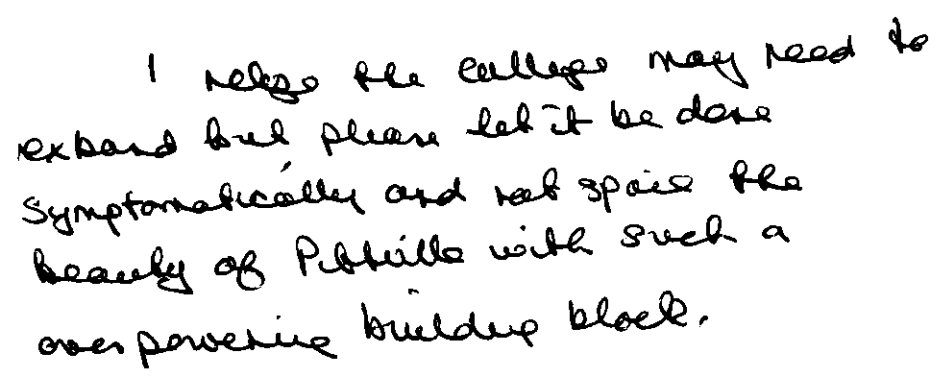 I relize the college may need to
expand but please let it be done
symptomatically and not spoil the
beauty of Pittville with such a
over powering building block.